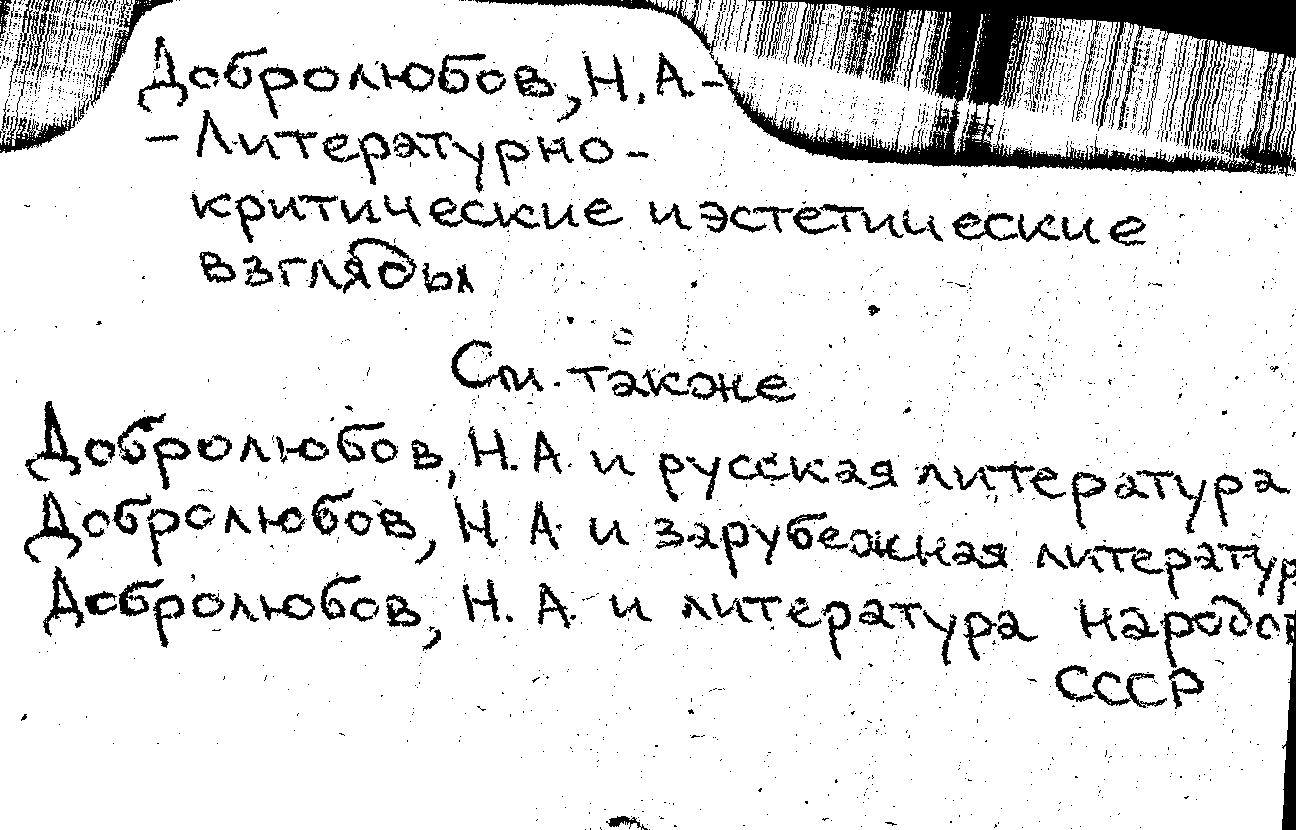 Добролюбов, Н. А -
- Литературно-
критические и эстетические
взгляды
См. также
Добролюбов, Н. А. и русская литература
Добролюбов, Н. А. и зарубежная литератур
Добролюбов, Н. А. и литература народов
СССР